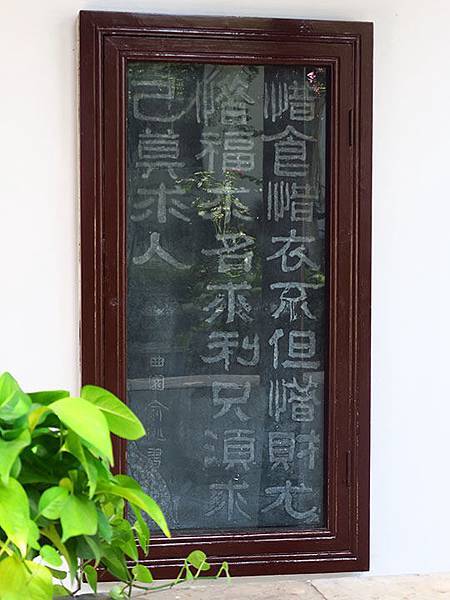 惜食惜衣不但惜財尤
惜福求名求利只須求
己莫求人
曲園